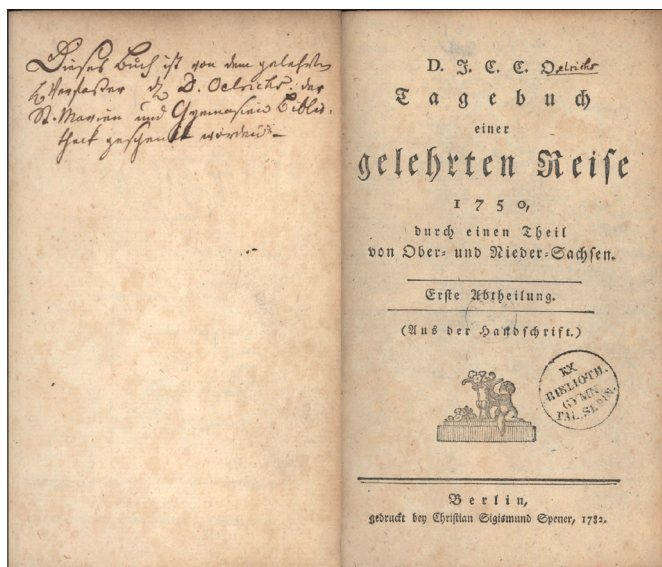 Dieses Buch ist von dem gelehrten
Verfasser D. Oelrichs der
St. Marien und Gymnasien Biblio-
thek geschenkt worden
D. J. C. C. Oelrichs
Tagebuch
einer
gelehrten Reise
1750,
durch einen Theil
von Ober- und Nieder-Sachsen.
Erste Abtheilung.
(Aus der Handschrift.)
EX
BIBLIOTH.
GYMN.
PAL.
Berlin,
gedruckt bey Christian Sigismund Spener, 1782.